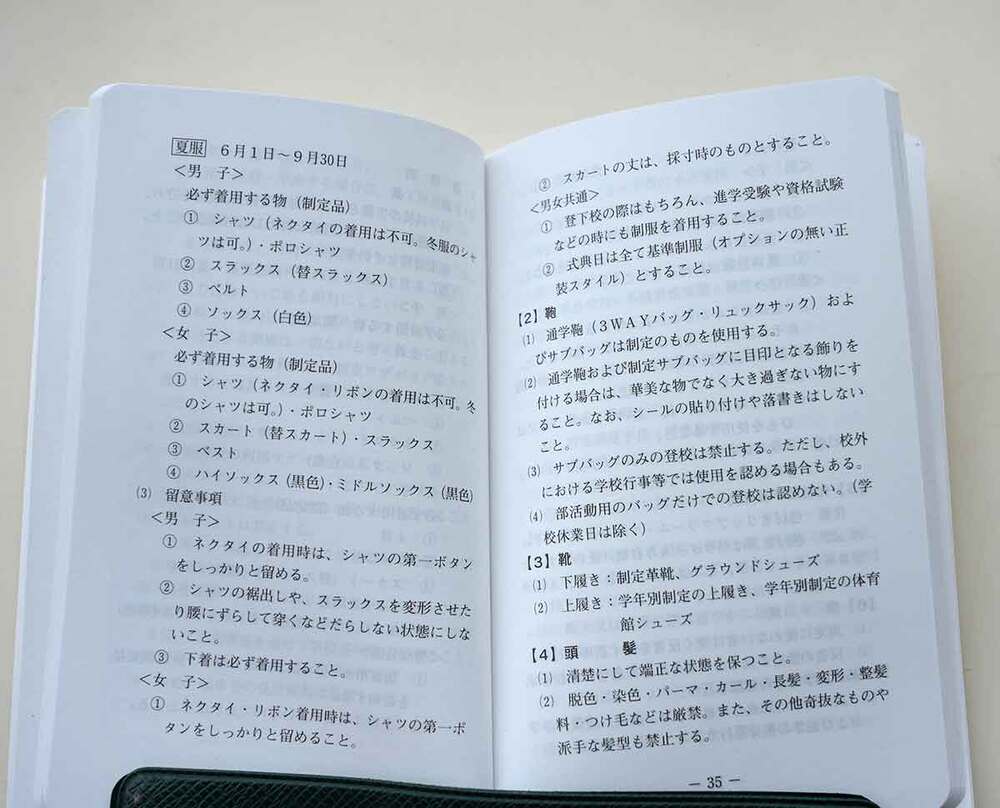 夏服 6月1日〜9月30日
<男 子>
必ず着用する物（制定品）
① シャツ（ネクタイの着用は不可。冬服のシャ
ツは可。）・ポロシャツ
② スラックス（替スラックス）
③ ベルト
④ ソックス（白色）
<女 子>
必ず着用する物（制定品）
① シャツ（ネクタイ・リボンの着用は不可。冬
のシャツは可。）・ポロシャツ
② スカート（替スカート）・スラックス
③ ベスト
④ ハイソックス（黒色）・ミドルソックス（黒色）
(3) 留意事項
<男 子>
① ネクタイの着用時は、シャツの第一ボタン
をしっかりと留める。
② シャツの裾出しや、スラックスを変形させた
り腰にずらして穿くなどだらしない状態にしな
いこと。
③ 下着は必ず着用すること。
<女 子>
① ネクタイ・リボン着用時は、シャツの第一ボ
タンをしっかりと留めること。
② スカートの丈は、採寸時のものとすること。
<男女共通>
① 登下校の際はもちろん、進学受験や資格試験
などの時にも制服を着用すること。
② 式典日は全て基準制服（オプションの無い正
装スタイル）とすること。
【2】鞄
(1) 通学鞄（3WAYバッグ・リュックサック）およ
びサブバッグは制定のものを使用する。
(2) 通学鞄および制定サブバッグに目印となる飾りを
付ける場合は、華美な物でなく大き過ぎない物にす
ること。なお、シールの貼り付けや落書きはしない
こと。
(3) サブバッグのみの登校は禁止する。ただし、校外
における学校行事等では使用を認める場合もある。
(4) 部活動用のバッグだけでの登校は認めない。（学
校休業日は除く）
【3】靴
(1) 下履き：制定革靴、グラウンドシューズ
(2) 上履き：学年別制定の上履き、学年別制定の体育
館シューズ
【4】頭 髪
(1) 清楚にして端正な状態を保つこと。
(2) 脱色・染色・パーマ・カール・長髪・変形・整髪
料・つけ毛などは厳禁。また、その他奇抜なものや
派手な髪型も禁止する。
― 35 ―